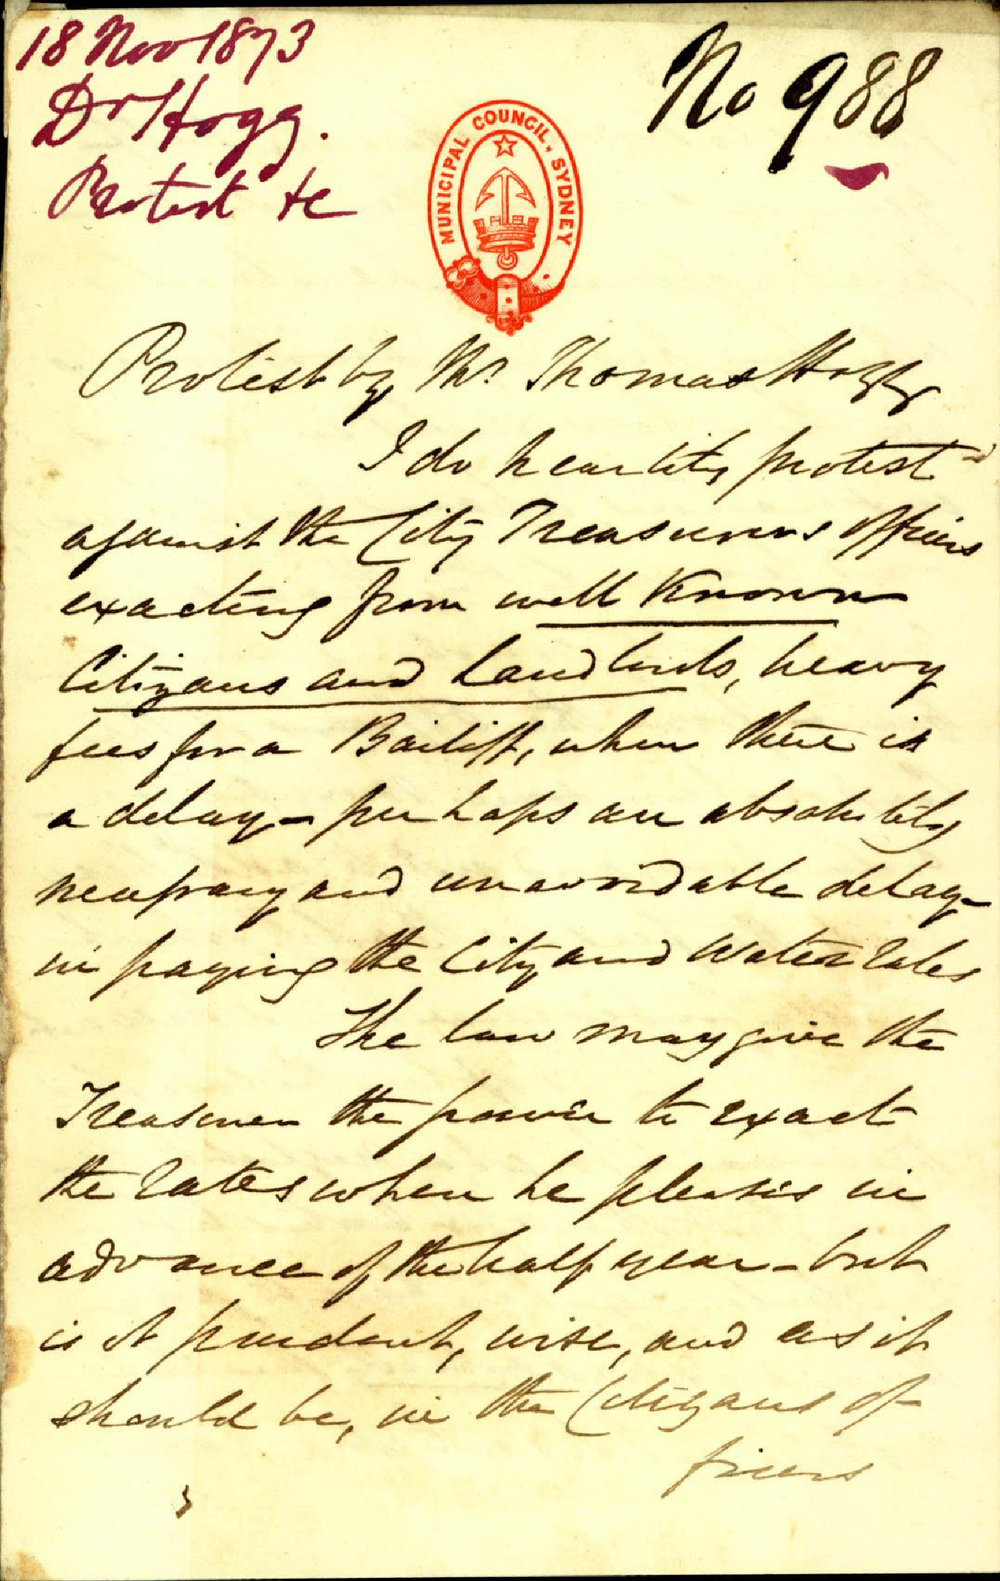 18 Nov 1873
Dr Hogg.
Protest &c
No 988
MUNICIPAL COUNCIL. SYDNEY
Protest by Mr. Thomas Hogg
I do heartily protest
against the City Treasurers officers
exacting from well Known
Citizans and Landlords, heavy
fees for a Bailiff, when there is
a delay - perhaps an absolutely
necessary and unavoidable delay -
in paying the City and Water rates
The law may give the
Treasurer the power to exact
the rates when he pleases in
advance of the half year - but
is it prudent, wise, and as it
should be, in the Citizans of-
ficers